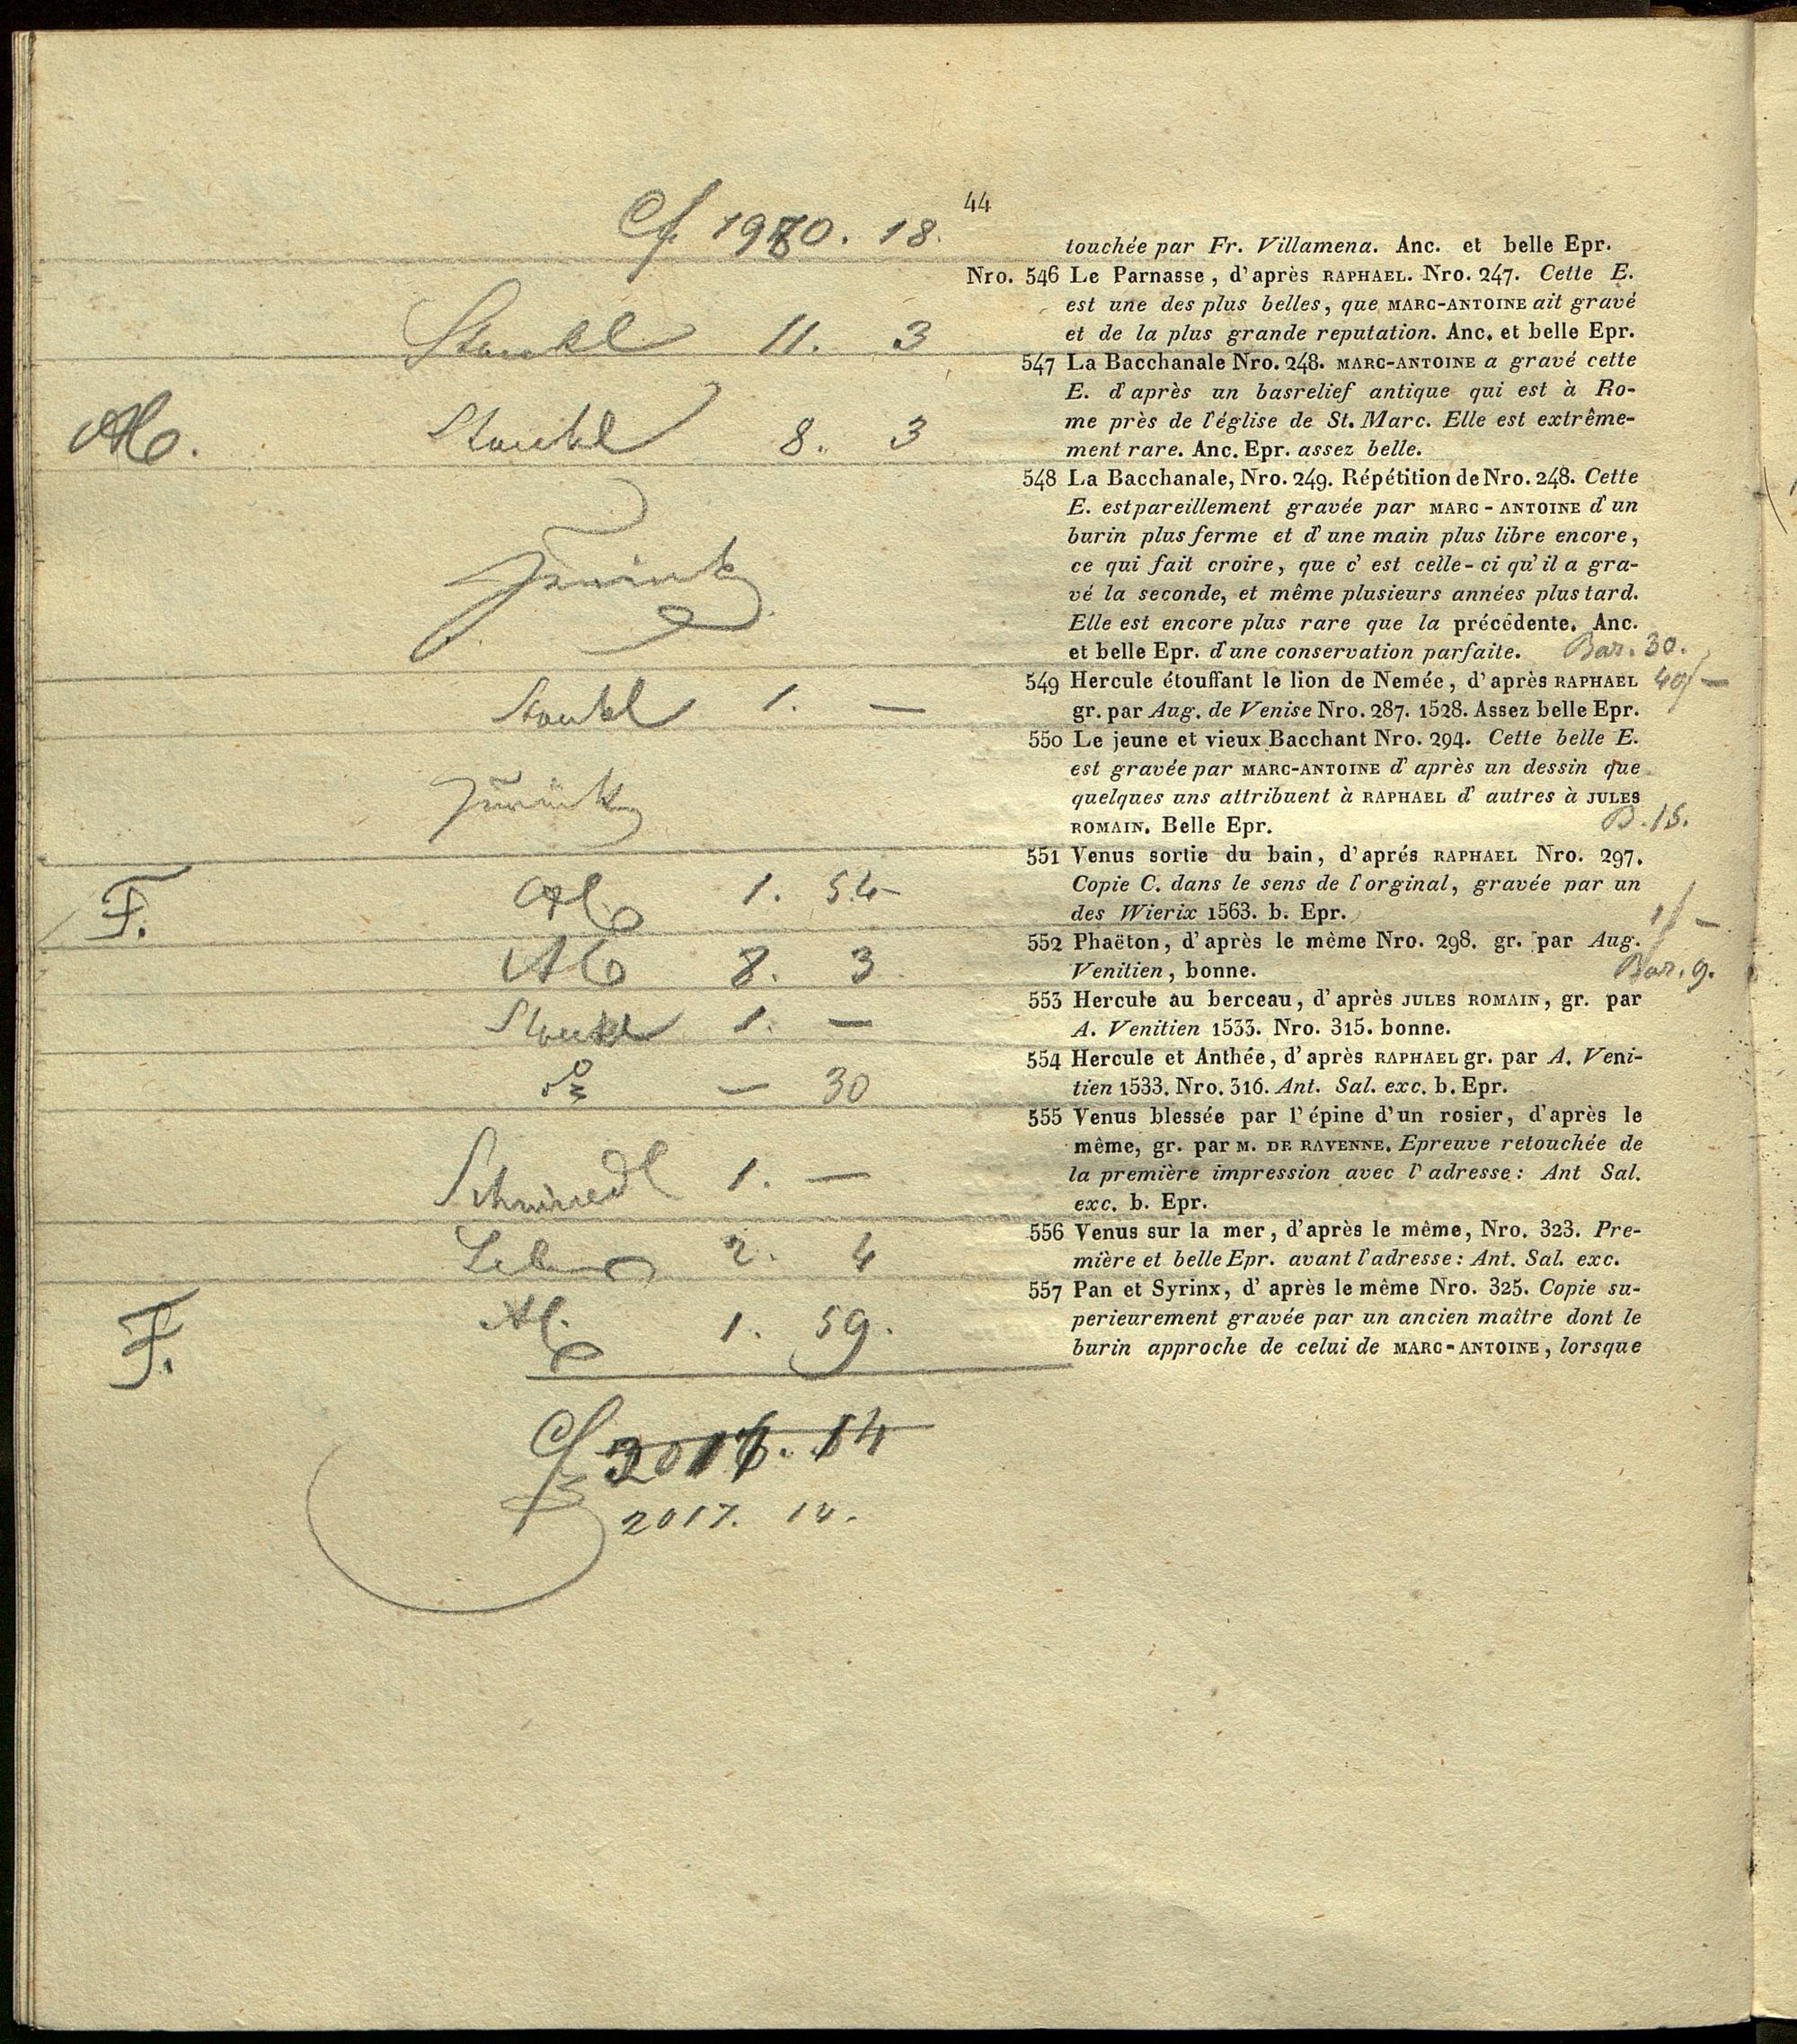 44
1980. 18.
Stoukl 11. 3
AB. Stoukl 8. 3
Zurück
Stoukl 1. —
Zurück
F. AB 1. 54
AB 8. 3
Stoukl 1. —
— 30
Schmiedl 1. —
2. 4
F. AB 1. 59.
2017. 14.
touchée par Fr. Villamena. Anc. et belle Epr.
Nro. 546 Le Parnasse, d'après RAPHAEL. Nro. 247. Cette E.
est une des plus belles, que MARC-ANTOINE ait gravé
et de la plus grande reputation. Anc. et belle Epr.
547 La Bacchanale Nro. 248. MARC-ANTOINE a gravé cette
E. d'après un basrelief antique qui est à Ro-
me près de l'église de St. Marc. Elle est extrême-
ment rare. Anc. Epr. assez belle.
548 La Bacchanale, Nro. 249. Répétition de Nro. 248. Cette
E. est pareillement gravée par MARC-ANTOINE d'un
burin plus ferme et d'une main plus libre encore,
ce qui fait croire, que c'est celle-ci qu'il a gra-
vé la seconde, et même plusieurs années plus tard.
Elle est encore plus rare que la précédente. Anc.
et belle Epr. d'une conservation parfaite. Bar. 30.
549 Hercule étouffant le lion de Nemée, d'après RAPHAEL 40/—
gr. par Aug. de Venise Nro. 287. 1528. Assez belle Epr.
550 Le jeune et vieux Bacchant Nro. 294. Cette belle E.
est gravée par MARC-ANTOINE d'après un dessin que
quelques uns attribuent à RAPHAEL d'autres à JULES
ROMAIN. Belle Epr. B. 15.
551 Venus sortie du bain, d'aprés RAPHAEL Nro. 297.
Copie C. dans le sens de l'orginal, gravée par un
des Wierix 1563. b. Epr. 1/—
552 Phaëton, d'après le mème Nro. 298. gr. par Aug.
Venitien, bonne. Bar. 9.
553 Hercule au berceau, d'après JULES ROMAIN, gr. par
A. Venitien 1533. Nro. 315. bonne.
554 Hercule et Anthée, d'après RAPHAEL gr. par A. Veni-
tien 1533. Nro. 316. Ant. Sal. exc. b. Epr.
555 Venus blessée par l'épine d'un rosier, d'après le
même, gr. par M. DE RAVENNE. Epreuve retouchée de
la première impression avec l'adresse: Ant Sal.
exc. b. Epr.
556 Venus sur la mer, d'après le même, Nro. 323. Pre-
mière et belle Epr. avant l'adresse: Ant. Sal. exc.
557 Pan et Syrinx, d'après le même Nro. 325. Copie su-
perieurement gravée par un ancien maître dont le
burin approche de celui de MARC-ANTOINE, lorsque